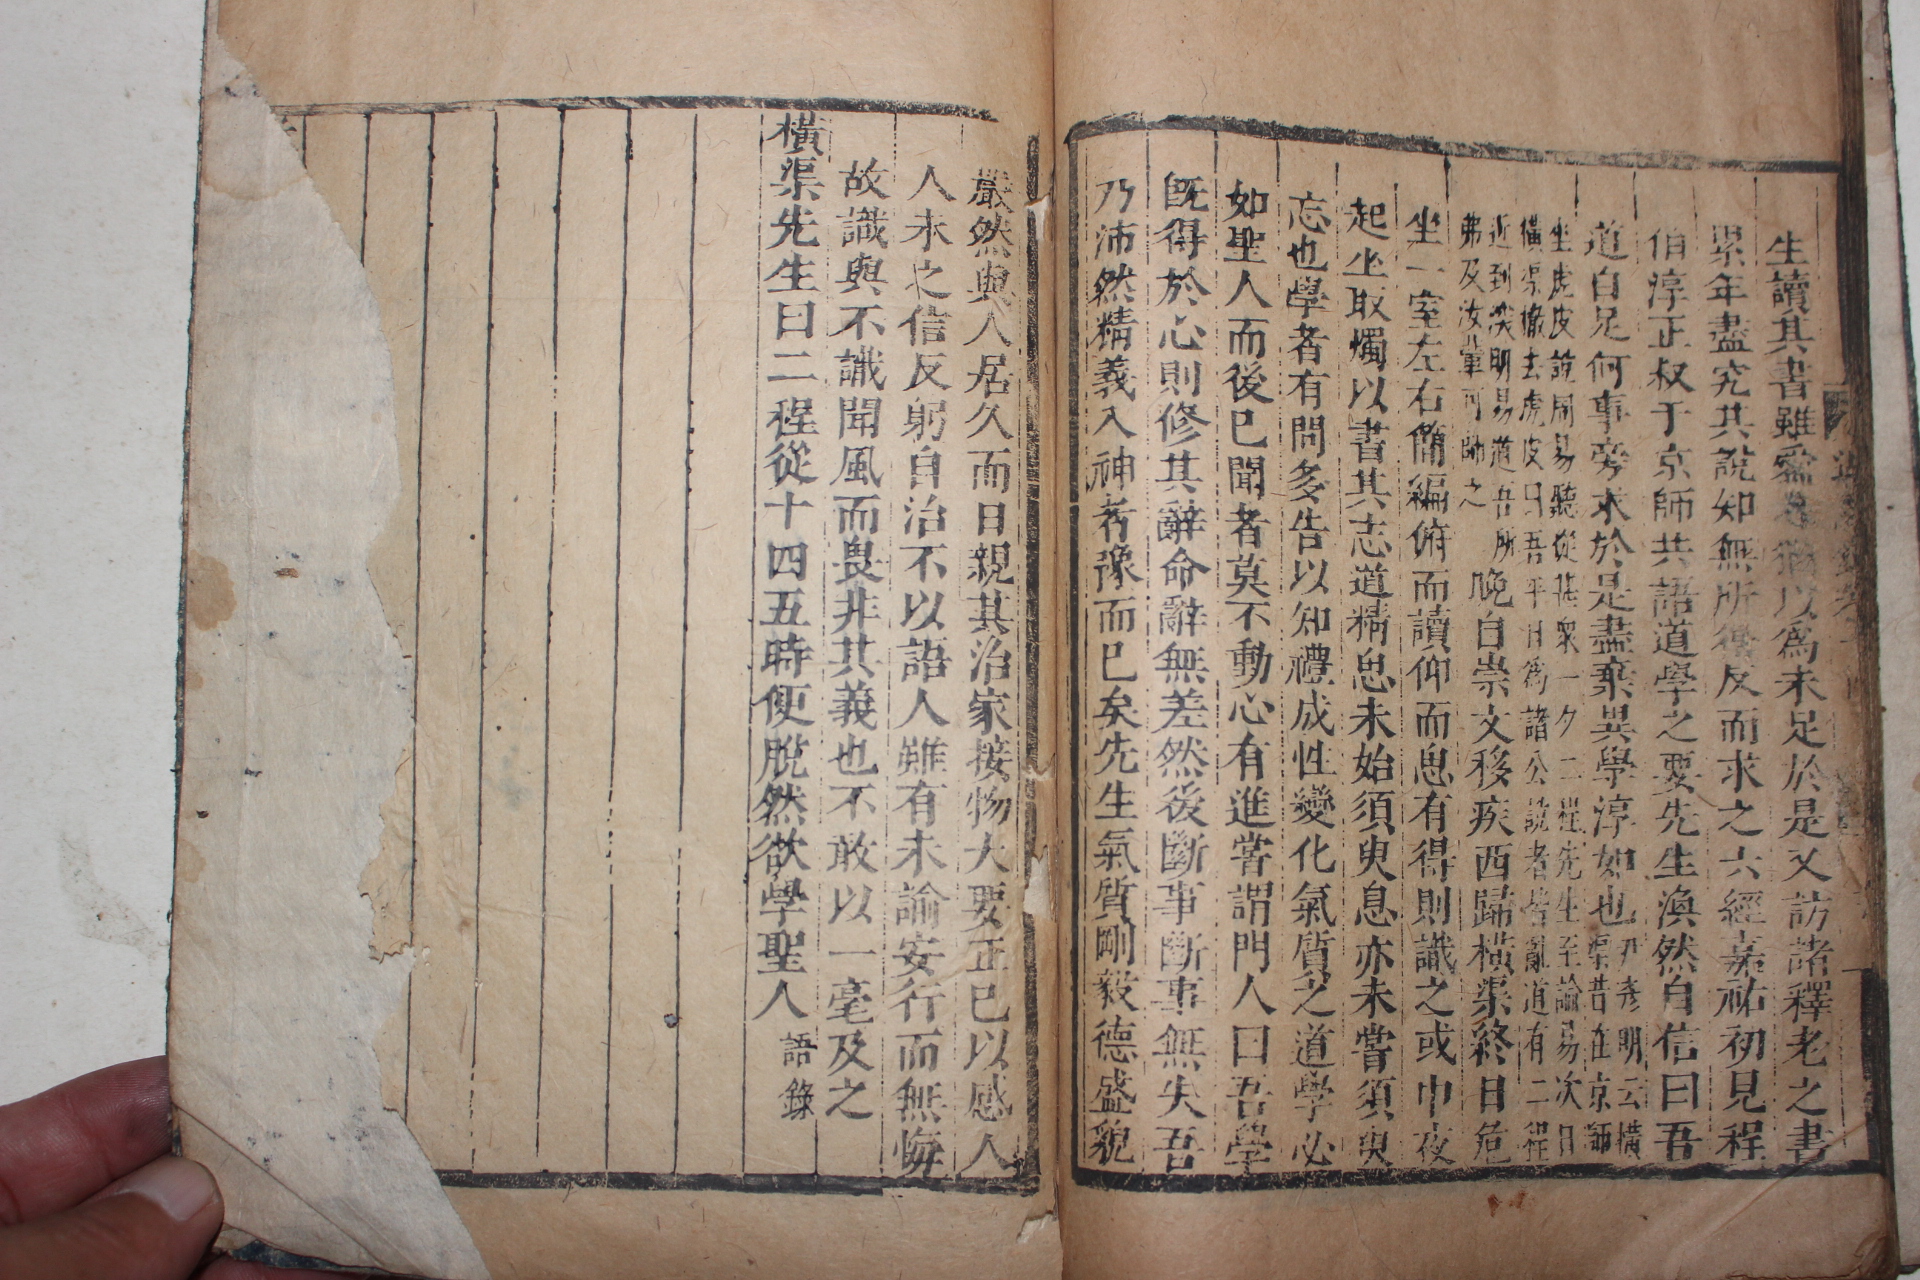 生讀其書雖愛猶以爲未足於是又訪諸釋老之書
累年盡究其說知無所得反而求之六經嘉祐初見程
伯淳正叔于京師共語道學之要先生渙然自信曰吾
道自足何事旁求於是盡棄異學淳如也尹彥明云橫
渠昔在京師
坐虎皮說周易聽從甚衆一夕二程先生至論易次日
橫渠撤去虎皮曰吾平日爲諸公說者皆亂道有二程
近到深明易道吾所
弗及汝輩可師之晚自崇文移疾西歸橫渠終日危
坐一室左右簡編俯而讀仰而思有得則識之或中夜
起坐取燭以書其志道精思未始須臾息亦未嘗須臾
忘也學者有問多告以知禮成性變化氣質之道學必
如聖人而後已聞者莫不動心有進嘗謂門人曰吾學
旣得於心則修其辭命辭無差然後斷事斷事無失吾
乃沛然精義入神者豫而已矣先生氣質剛毅德盛貌
嚴然與人居久而日親其治家接物大要正己以感人
人未之信反躬自治不以語人雖有未諭安行而無悔
故識與不識聞風而畏非其義也不敢以一毫及之
橫渠先生曰二程從十四五時便脫然欲學聖人語錄